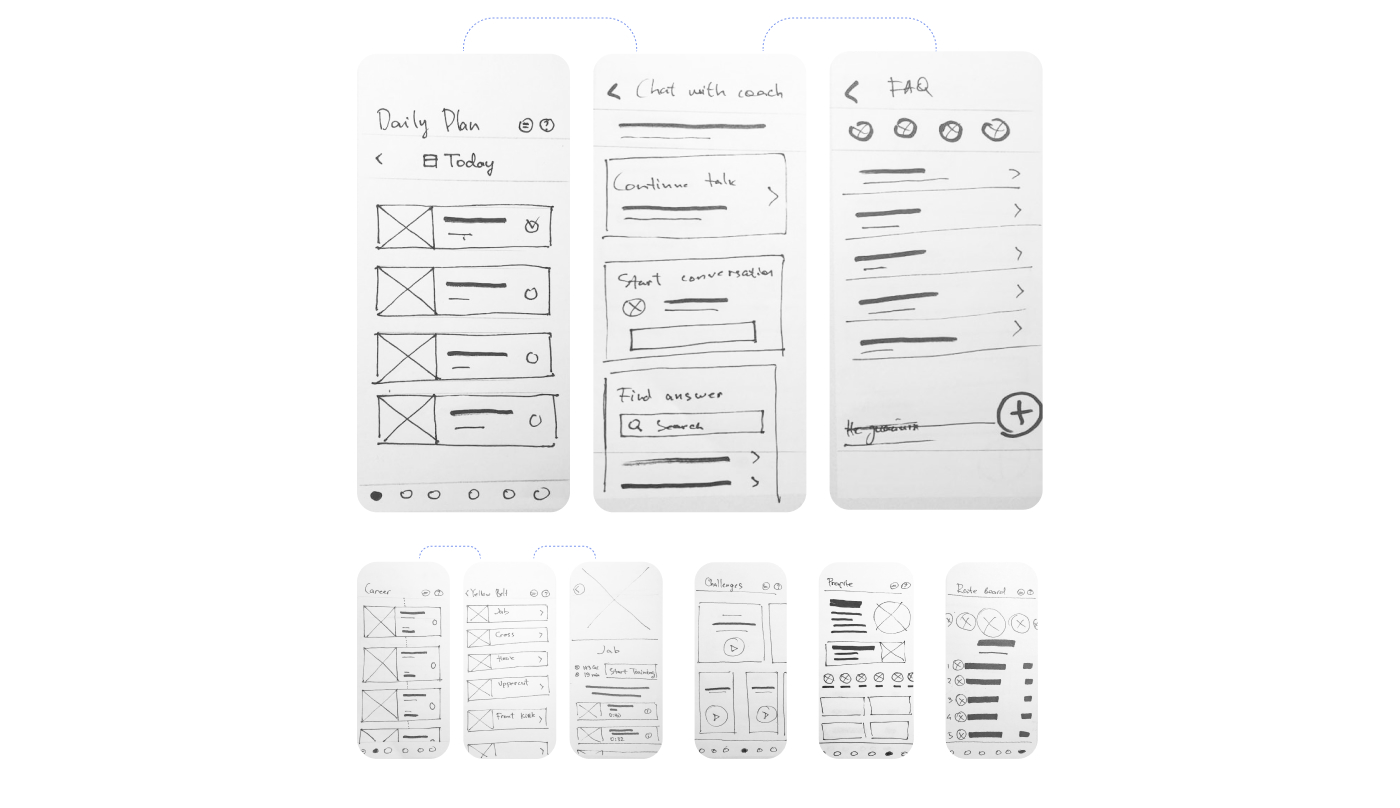 Daily Plan
?
Today
Chat with coach
Continue talk
Start conversation
Find answer
Search
FAQ
Career
?
Yellow Belt
?
Jab
Cross
Hook
Uppercut
Front Kick
Jab
Start Training
0:32
Challenges
?
Profile
?
Rate Board
?
1
2
3
4
5